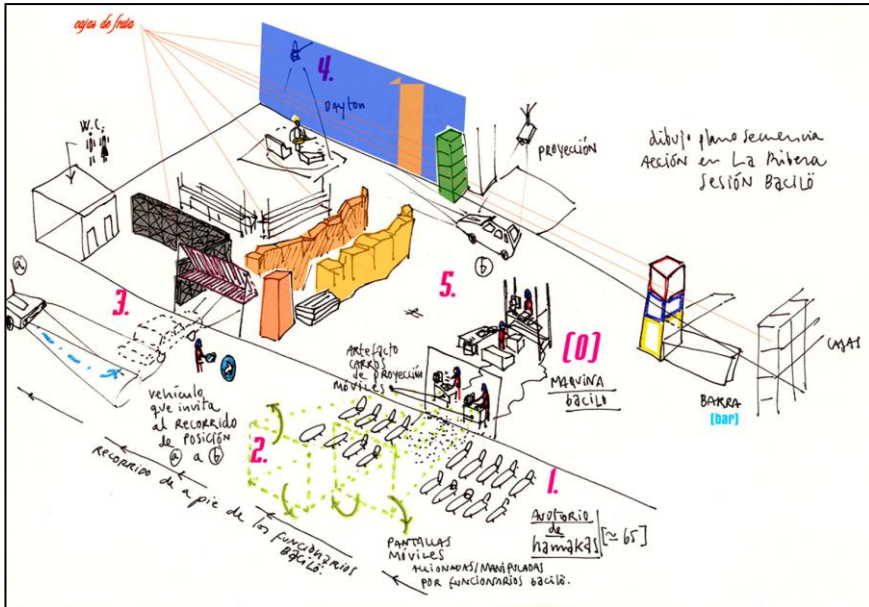 cajas de fruta
4.
Dayton
W.C.
PROYECCIÓN
dibujo plano secuencia
ACCIÓN en La Ribera
SESIÓN Baciló
a
b
3.
5.
[0]
MAQUINA
bacilo
CAJAS
BARRA
[bar]
ARTEFACTO
CARROS
de PROYECCIÓN
MÓVILES
vehículo
que invita
al RECORRIDO
de POSICIÓN
a a b
2.
1.
AUDITORIO
de
hamakas [≃ 65]
RECORRIDO de a pie de los funcionarios
Baciló.
PANTALLAS
MÓVILES
ACCIONADAS/MANIPULADAS
POR FUNCIONARIOS baciló.